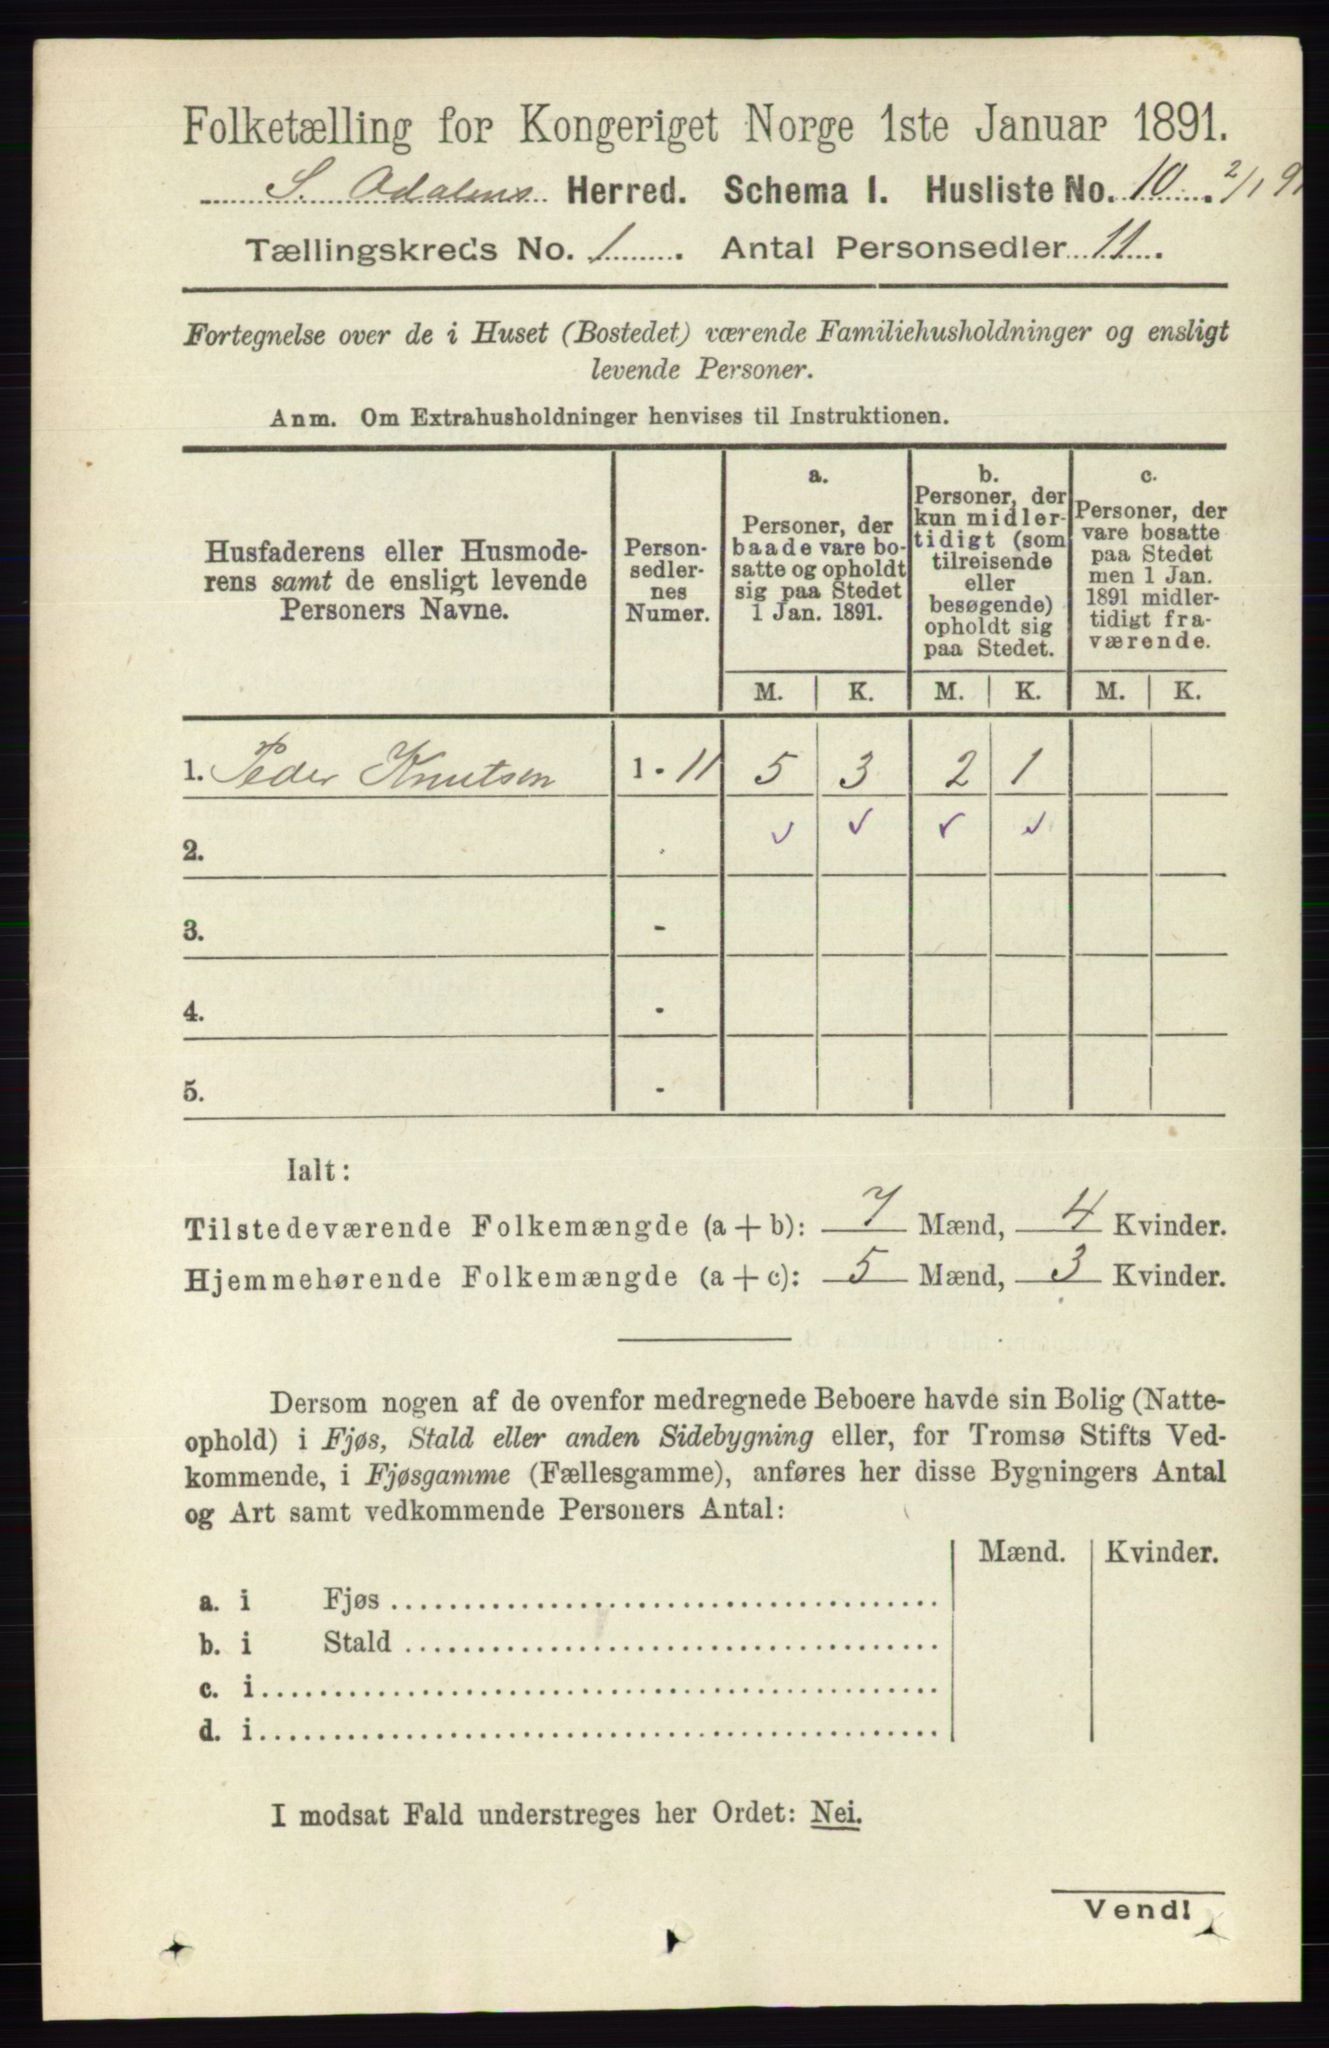 Folketælling for Kongeriget Norge 1ste Januar 1891.
S. Adalens Herred. Schema I. Husliste No. 10. 2/1 91
Tællingskreds No. 1. Antal Personsedler 11.
Fortegnelse over de i Huset (Bostedet) værende Familiehusholdninger og ensligt
levende Personer.
Anm. Om Extrahusholdninger henvises til Instruktionen.
Husfaderens eller Husmode-
rens samt de ensligt levende
Personers Navne.
Person-
sedler-
nes
Numer.
a.
Personer, der
baade vare bo-
satte og opholdt
sig paa Stedet
1 Jan. 1891.
b.
Personer, der
kun midler-
tidigt (som
tilreisende
eller
besøgende)
opholdt sig
paa Stedet.
c.
Personer, der
vare bosatte
paa Stedet
men 1 Jan.
1891 midler-
tidigt fra-
værende.
M. K. M. K. M. K.
1. Peder Knutsen 1 - 11 5 3 2 1
2. - ✓ ✓ ✓ ✓
3. -
4. -
5. -
Ialt:
Tilstedeværende Folkemængde (a + b): 7 Mænd, 4 Kvinder.
Hjemmehørende Folkemængde (a + c): 5 Mænd, 3 Kvinder.
Dersom nogen af de ovenfor medregnede Beboere havde sin Bolig (Natte-
ophold) i Fjøs, Stald eller anden Sidebygning eller, for Tromsø Stifts Ved-
kommende, i Fjøsgamme (Fællesgamme), anføres her disse Bygningers Antal
og Art samt vedkommende Personers Antal:
Mænd. Kvinder.
a. i Fjøs
b. i Stald
c. i
d. i
I modsat Fald understreges her Ordet: Nei.
Vend!